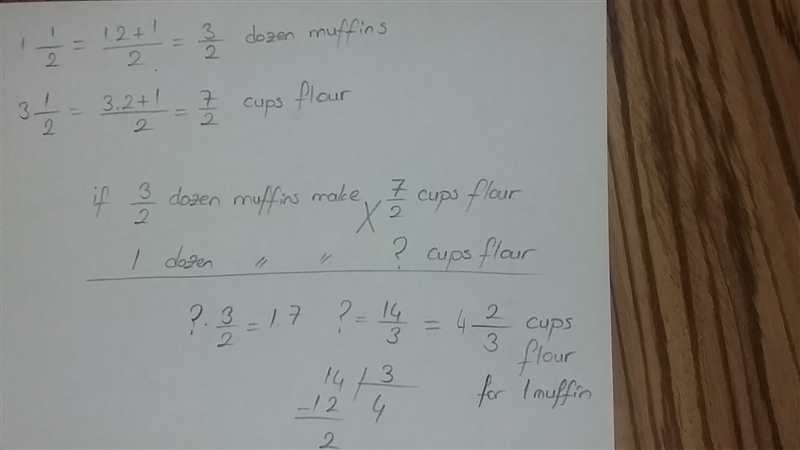 1 1/2 = 12+1/2 = 3/2 dozen muffins
3 1/2 = 3.2+1/2 = 7/2 cups flour
if 3/2 dozen muffins make 7/2 cups flour
1 dozen " " ? cups flour
?. 3/2 = 1.7 ? = 14/3 = 4 2/3 cups
flour
for 1 muffin
14 3
-12 4
2